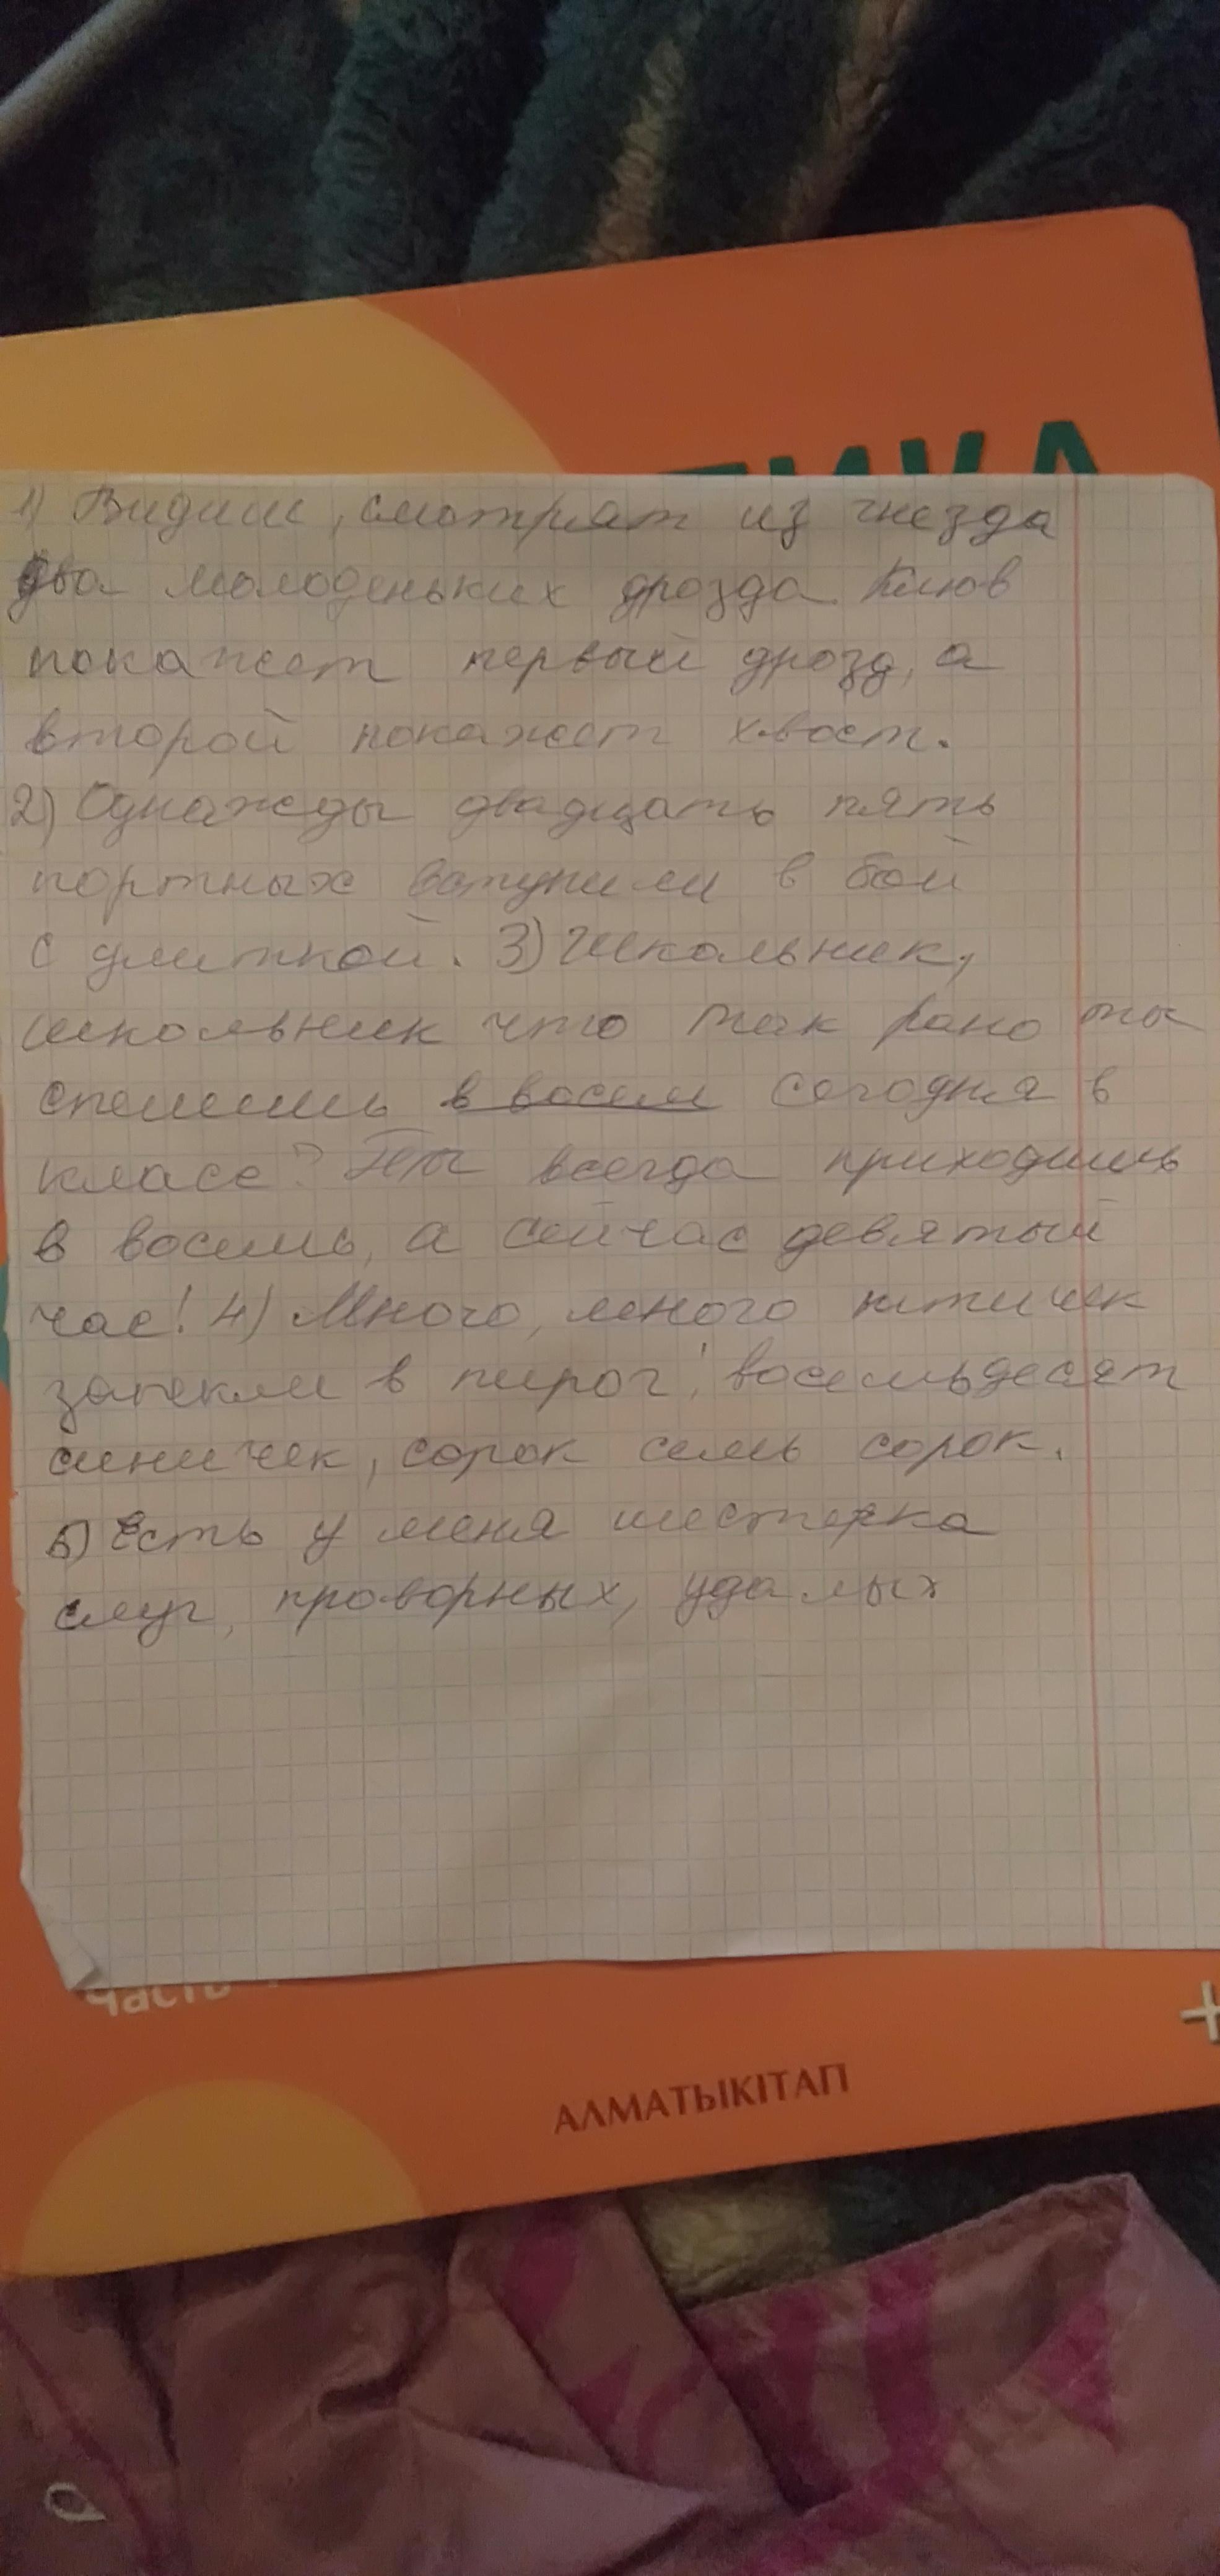 ТИКА
1) Видим, смотрят из гнезда
два молоденьких дрозда Клюв
покажет первый дрозд, а
второй покажет хвост.
2) Однажды двадцать пять
портных вступили в бой
с улиткой. 3) Школьник,
школьник что так рано ты
спешишь в восем сегодня в
класс? Ты всегда приходишь
в восемь, а сейчас девятый
час! 4) Много, много птичек
запекли в пирог: восемьдесят
синичек, сорок семь сорок.
5) Есть у меня шестерка
слуг, проворных, удалых
часть
+
АЛМАТЫКІТАП